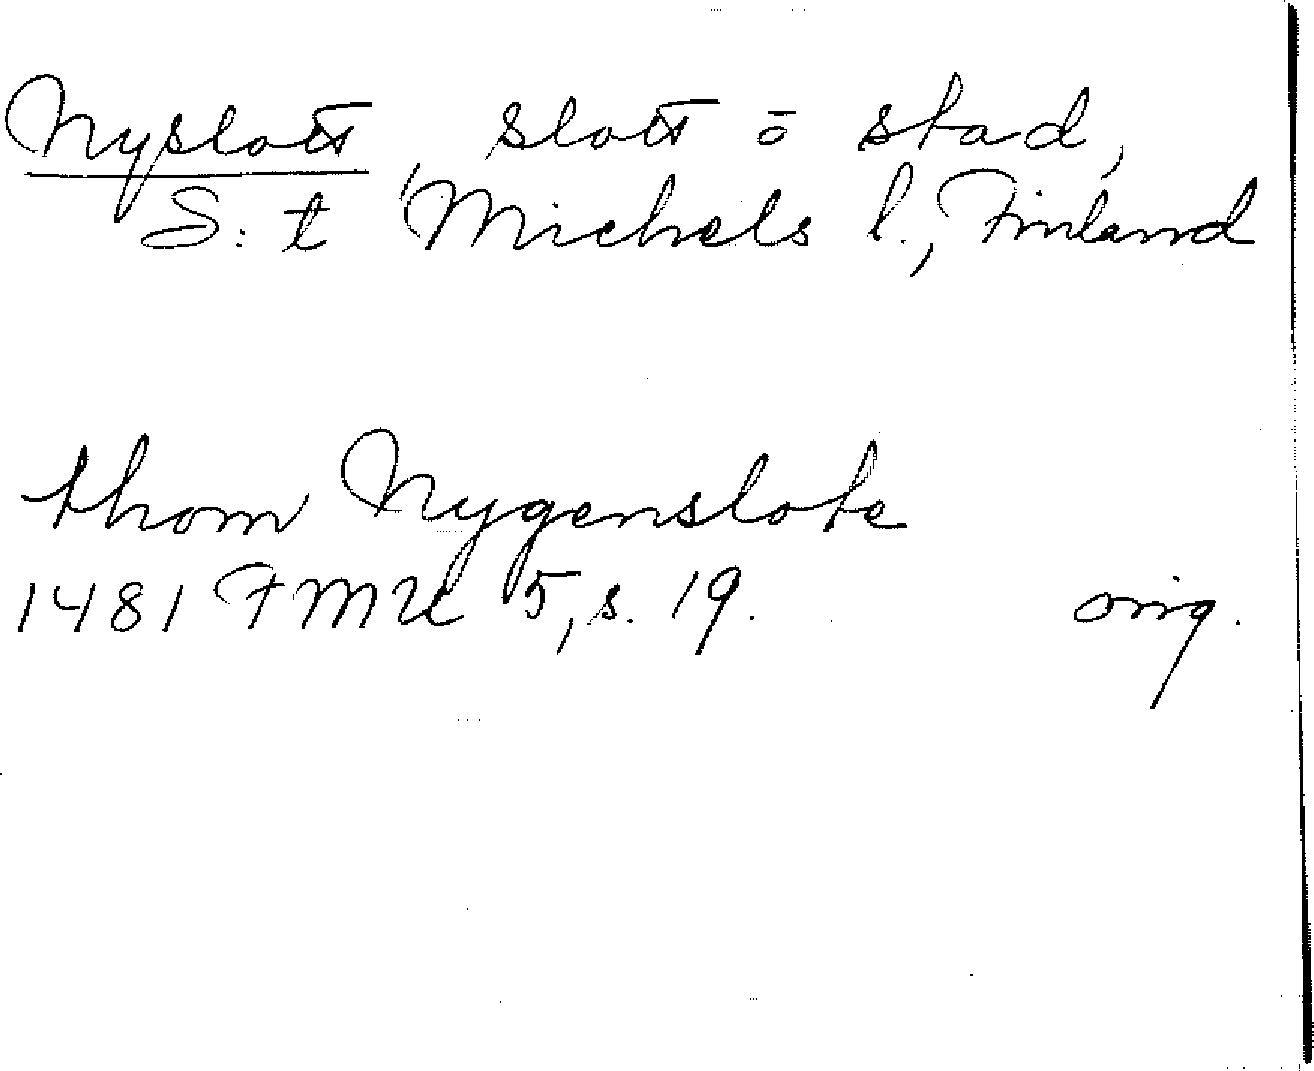 Nyslott, slott o stad,
S:t Michels l., Finland
thom Nygenslote
1481 FMU 5, s. 19. orig.